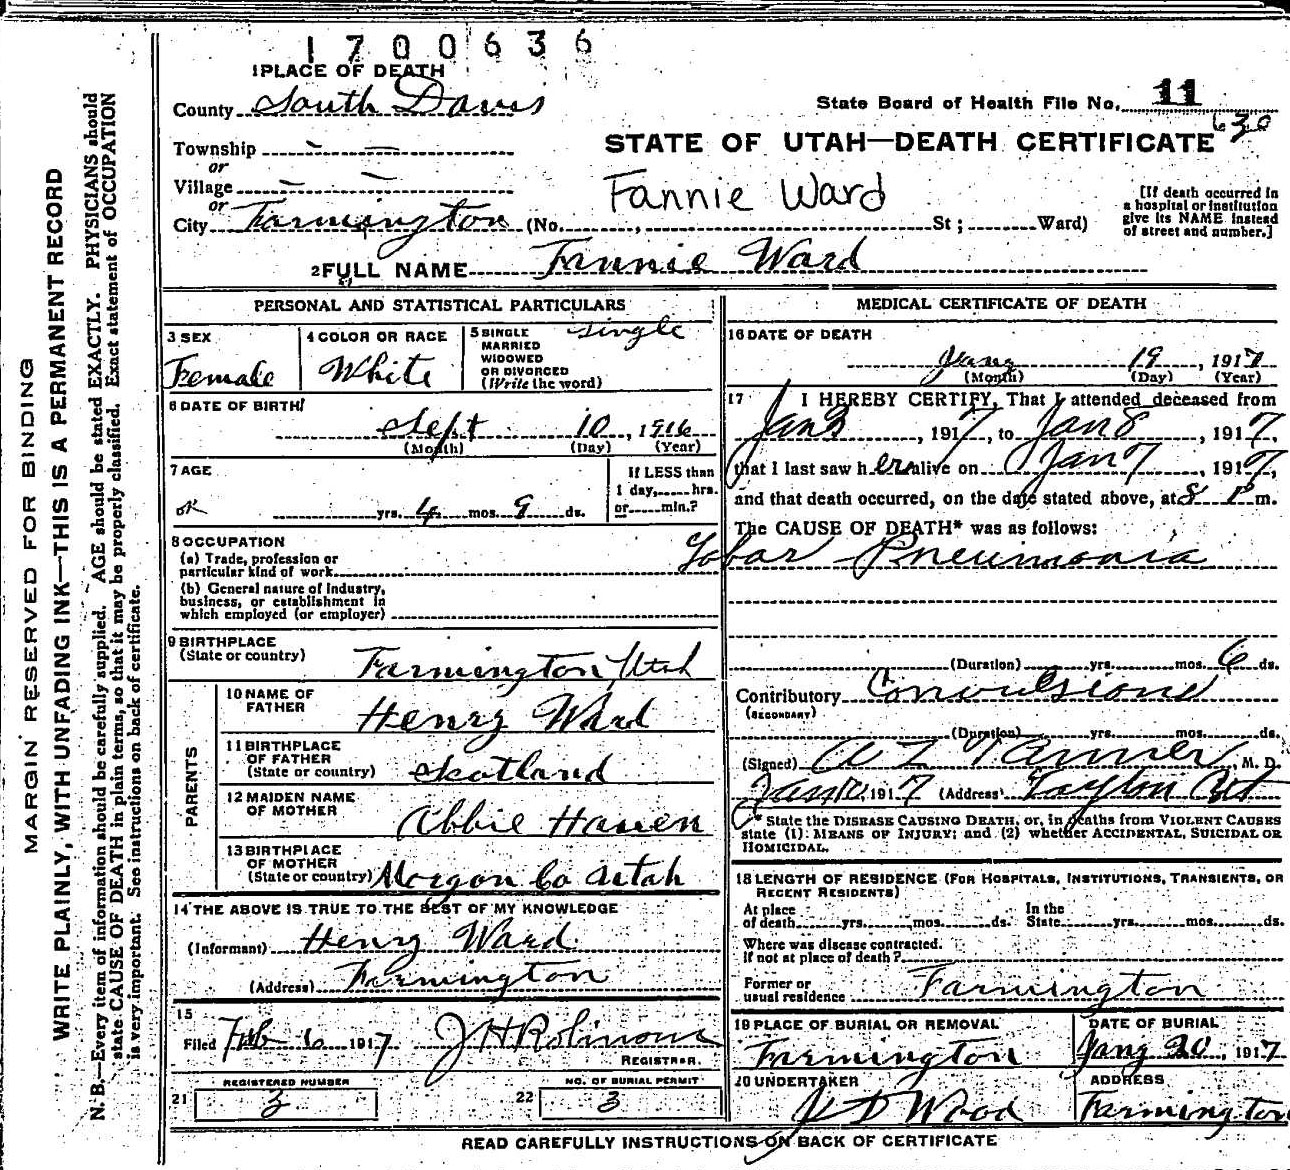 1700636
1 PLACE OF DEATH
County South Davis
State Board of Health File No. 11
630
Township — —
or
Village — —
or
City Farmington (No. , St; Ward)
STATE OF UTAH—DEATH CERTIFICATE
Fannie Ward
[If death occurred in
a hospital or institution
give its NAME instead
of street and number.]
2 FULL NAME Fannie Ward
PERSONAL AND STATISTICAL PARTICULARS
3 SEX
Female
4 COLOR OR RACE
White
5 SINGLE
MARRIED
WIDOWED
OR DIVORCED
(Write the word)
single
6 DATE OF BIRTH
Sept 10, 1916
(Month) (Day) (Year)
7 AGE
ok
yrs. 4 mos. 9 ds.
If LESS than
1 day, hrs.
or min.?
8 OCCUPATION
(a) Trade, profession or
particular kind of work
(b) General nature of Industry,
business, or establishment in
which employed (or employer)
9 BIRTHPLACE
(State or country)
Farmington, Utah
PARENTS
10 NAME OF
FATHER
Henry Ward
11 BIRTHPLACE
OF FATHER
(State or country)
Scotland
12 MAIDEN NAME
OF MOTHER
Abbie Hanen
13 BIRTHPLACE
OF MOTHER
(State or country)
Morgan Co Utah
14 THE ABOVE IS TRUE TO THE BEST OF MY KNOWLEDGE
(Informant) Henry Ward
(Address) Farmington
15
Filed Feb 6 1917 J H Robinson
REGISTRAR.
REGISTERED NUMBER
21 3
NO. OF BURIAL PERMIT
22 3
MEDICAL CERTIFICATE OF DEATH
16 DATE OF DEATH
Jany 19, 1917
(Month) (Day) (Year)
17 I HEREBY CERTIFY, That I attended deceased from
Jan 3, 1917, to Jan 8, 1917,
that I last saw her alive on Jan 7, 1917,
and that death occurred, on the date stated above, at 8 P m.
The CAUSE OF DEATH* was as follows:
Lobar Pneumonia
(Duration) yrs. mos. 6 ds.
Contributory Convulsions
(SECONDARY)
(Duration) yrs. mos. ds.
(Signed) A Z Tanner, M. D.
1917 (Address) Layton Ut
* State the DISEASE CAUSING DEATH, or, in deaths from VIOLENT CAUSES
state (1) MEANS OF INJURY; and (2) whether ACCIDENTAL, SUICIDAL OR
HOMICIDAL.
18 LENGTH OF RESIDENCE (FOR HOSPITALS, INSTITUTIONS, TRANSIENTS, OR
RECENT RESIDENTS)
At place
of death yrs. mos. ds.
In the
State yrs. mos. ds.
Where was disease contracted.
If not at place of death?
Former or
usual residence Farmington
19 PLACE OF BURIAL OR REMOVAL
Farmington
DATE OF BURIAL
Jany 20, 1917
20 UNDERTAKER
J D Wood
ADDRESS
Farmington
READ CAREFULLY INSTRUCTIONS ON BACK OF CERTIFICATE
MARGIN RESERVED FOR BINDING
WRITE PLAINLY, WITH UNFADING INK—THIS IS A PERMANENT RECORD
N. B.—Every item of information should be carefully supplied. AGE should be stated EXACTLY. PHYSICIANS should
state CAUSE OF DEATH in plain terms, so that it may be properly classified. Exact statement of OCCUPATION
is very important. See instructions on back of certificate.